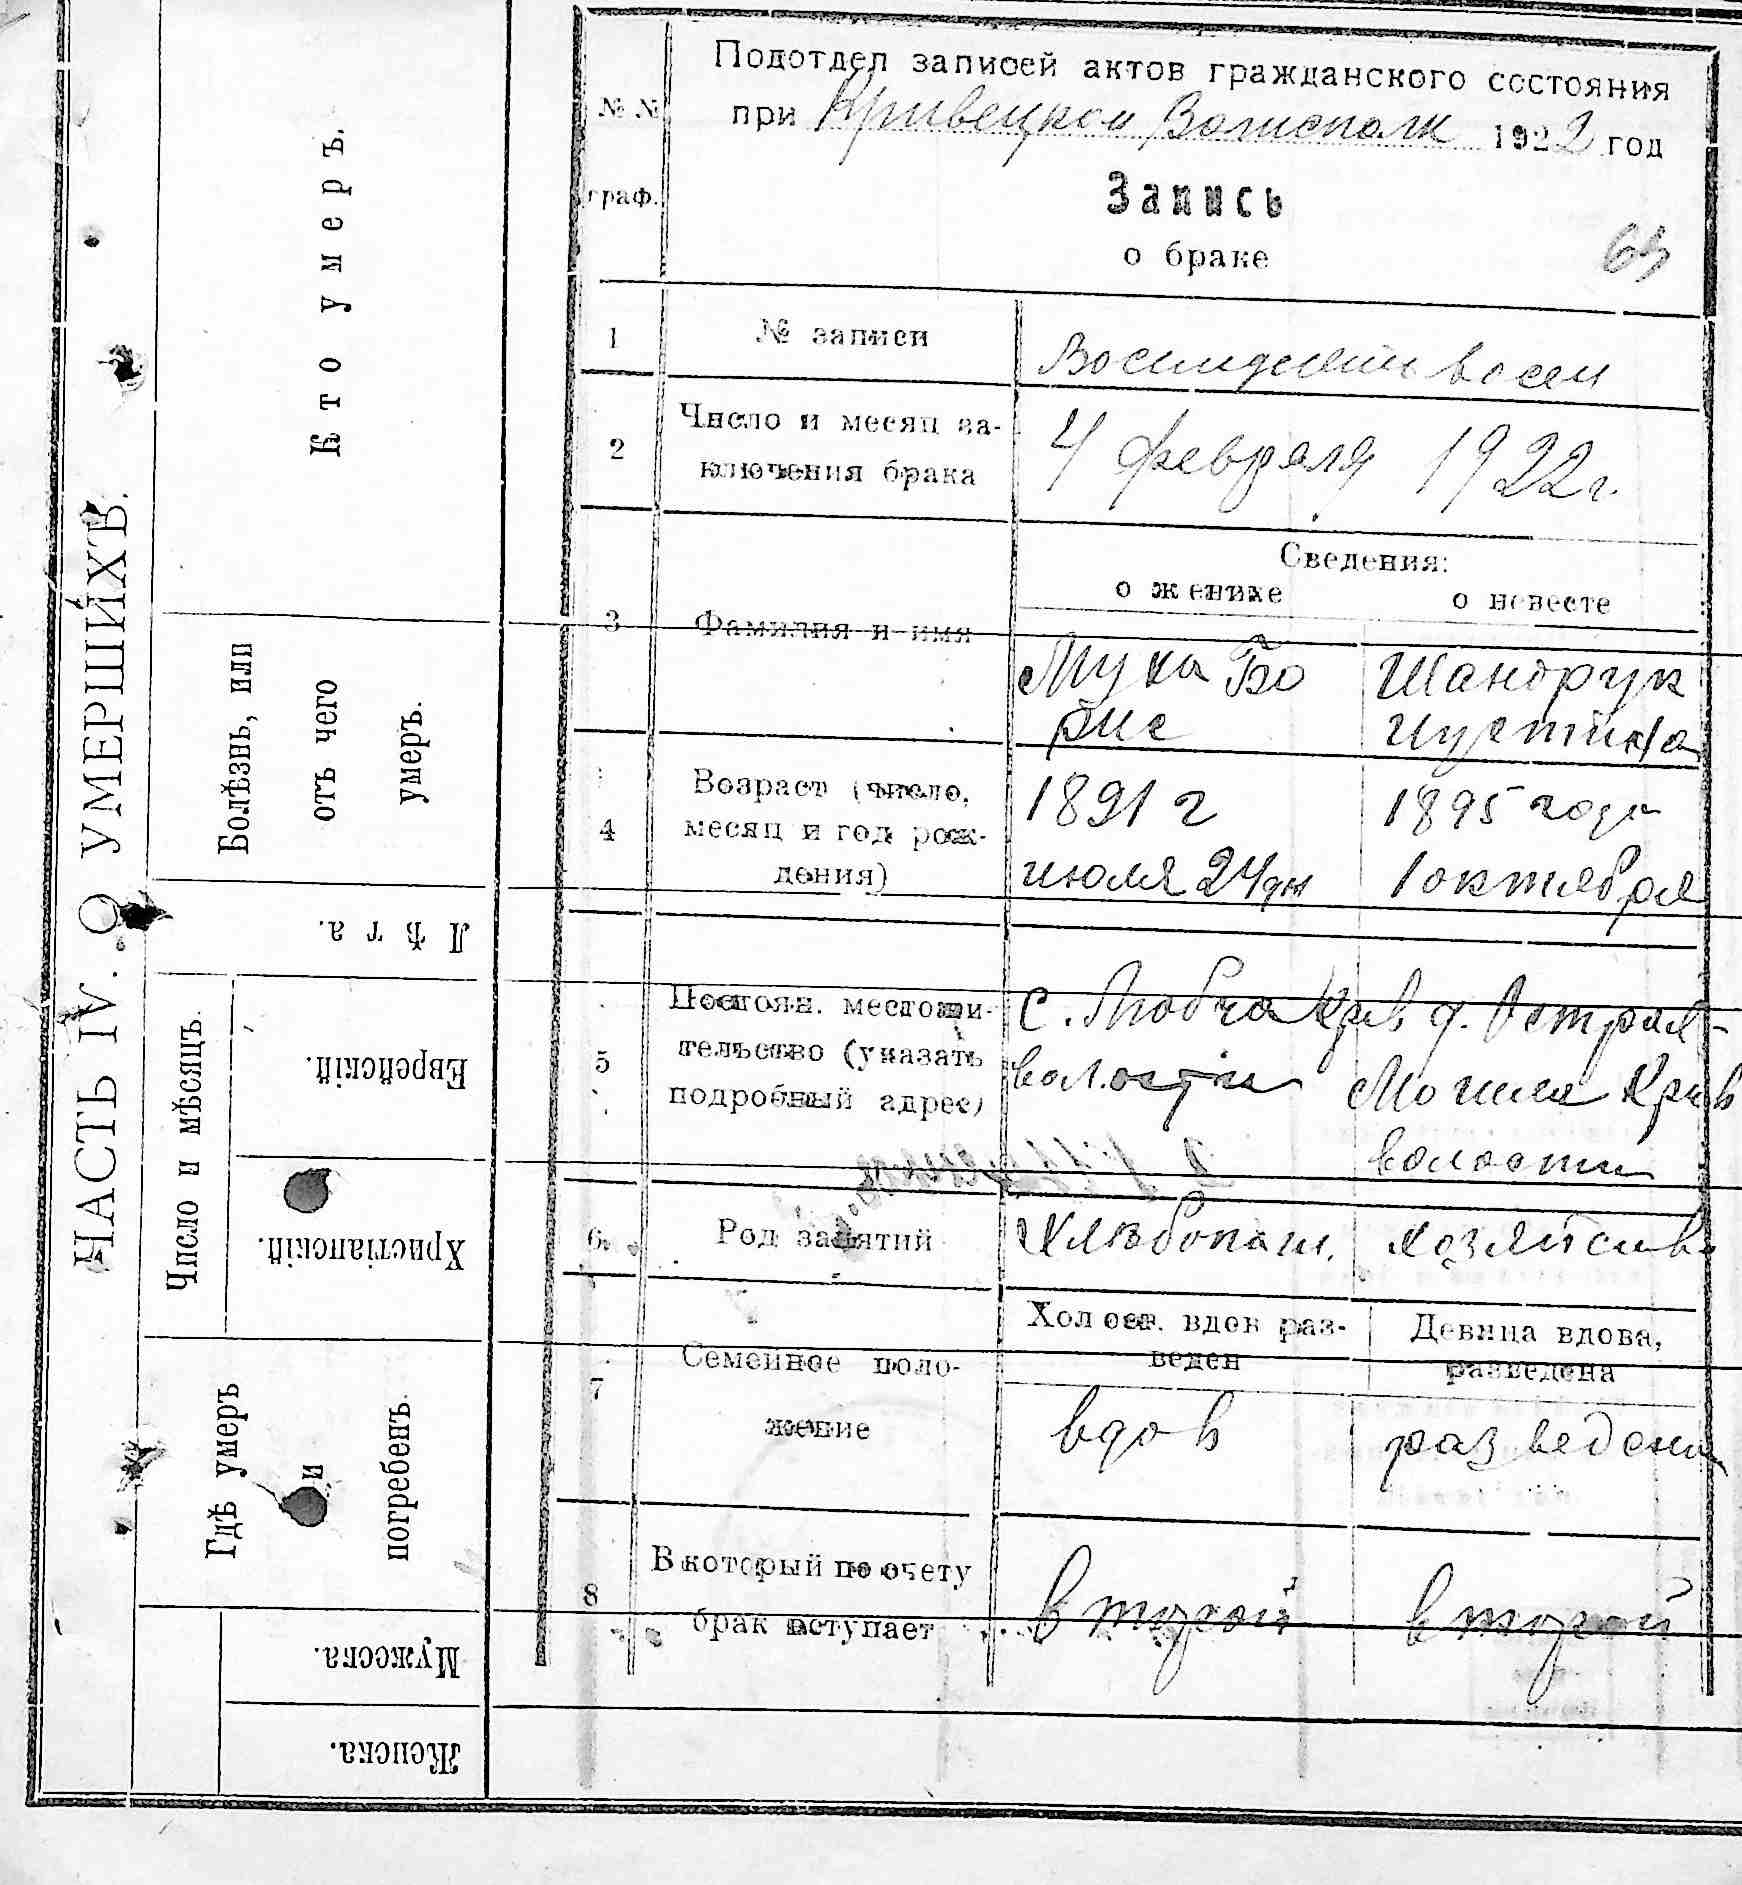 ЧАСТЬ IV. О УМЕРШИХЪ.
Кто умеръ.
Болѣзнь, или
отъ чего
умеръ.
Лѣта.
Число и мѣсяцъ.
Еврейскій.
Христіанскій.
Гдѣ умеръ
и
погребенъ.
Мужеска.
Женска.
№№
граф.
Подотдел записей актов гражданского состояния
при Кривецком Волисполк 1922 год
Запись
о браке
1
№ записи
Восемдесять восем
2
Число и месяц за-
ключения брака
4 февраля 1922 г.
Сведения:
о женихе
о невесте
3
Фамилия и имя
Муха Бо
рис
Шандрук
Иустина
4
Возраст (число,
месяц и год рож-
дения)
1891 г
июля 24 дн
1895 года
1 октября
5
Постоян. местожи-
тельство (указать
подробный адрес)
с. Любча Крив
волости
д. Острая-
Могила Крив
волости
6
Род занятий
Хлѣбопаш.
хозяйств.
7
Семейное поло-
жение
Холост. вдов раз-
веден
Девица вдова,
разведена
вдов
разведена
8
В который по счету
брак вступает
второй
второй